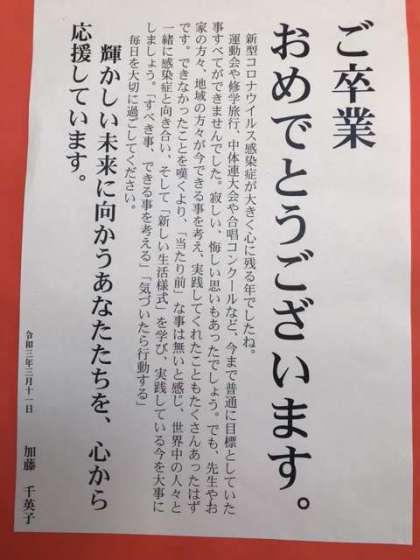 ご卒業
おめでとうございます。
新型コロナウイルス感染症が大きく心に残る年でしたね。
運動会や修学旅行、中体連大会や合唱コンクールなど、今まで普通に目標としていた
事すべてができませんでした。寂しい、悔しい思いもあったでしょう。でも、先生やお
家の方々、地域の方々が今できる事を考え、実践してくれたこともたくさんあったはず
です。できなかったことを嘆くより、「当たり前」な事は無いと感じ、世界中の人々と
一緒に感染症と向き合い、そして「新しい生活様式」を学び、実践している今を大事に
しましょう。「すべき事、できる事を考える」「気づいたら行動する」
毎日を大切に過ごしてください。
輝かしい未来に向かうあなたたちを、心から
応援しています。
令和三年三月十一日
加藤 千英子